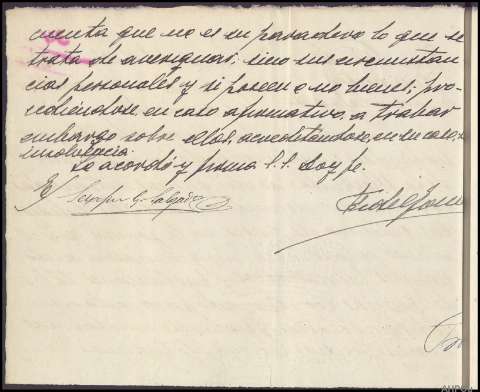 cuenta que no es su paradero lo que se
trata de averiguar, sino sus circunstan
cias personales y si poseen o no bienes; pro-
cediéndose, en caso afirmativo, a trabar
embargo sobre ellos, acreditandose, en su caso, la
insolvencia.
Lo acordó y firma S.S. doy fe.
E/